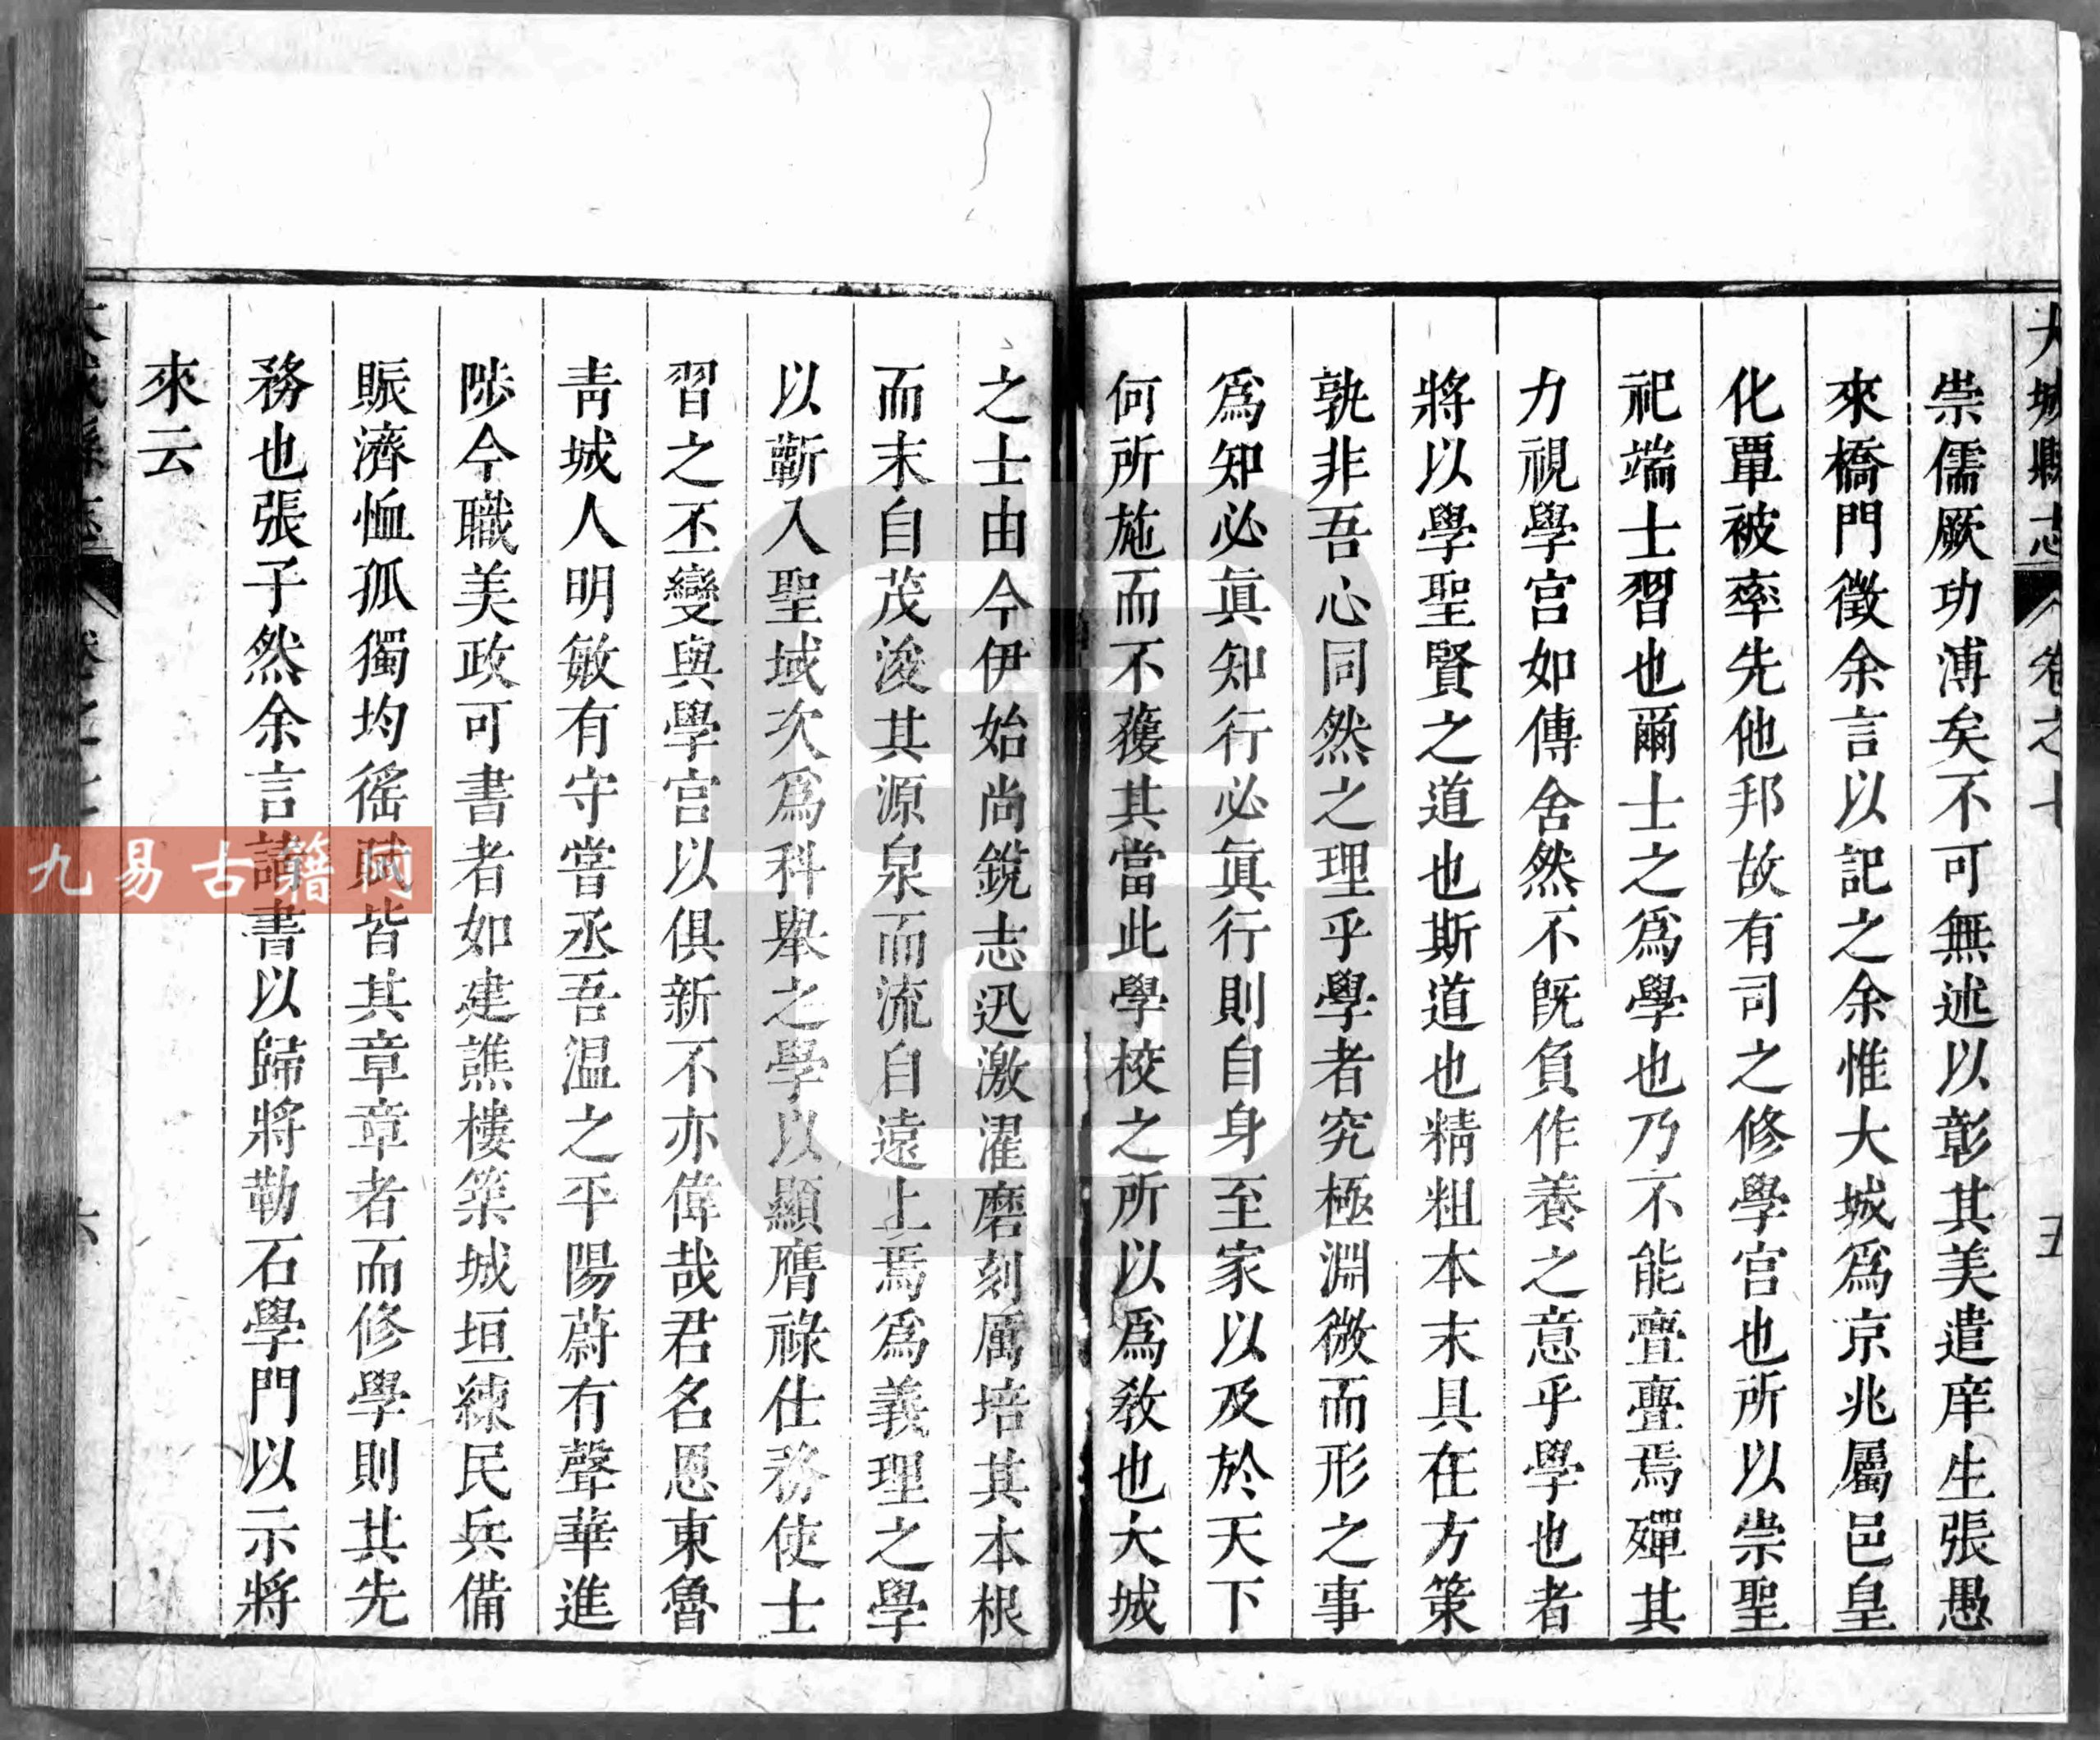 大城縣志 卷之七 五
崇儒厥功溥矣不可無述以彰其美遣庠生張愚
來橋門徵余言以記之余惟大城爲京兆屬邑皇
化覃被率先他邦故有司之修學宮也所以崇聖
祀端士習也爾士之爲學也乃不能亹亹焉殫其
力視學宮如傳舍然不旣負作養之意乎學也者
將以學聖賢之道也斯道也精粗本末具在方策
孰非吾心同然之理乎學者究極淵微而形之事
爲知必眞知行必眞行則自身至家以及於天下
何所施而不獲其當此學校之所以爲敎也大城
之士由今伊始尚銳志迅激濯磨刻厲培其本根
而末自茂浚其源泉而流自遠上焉爲義理之學
以蘄入聖域次爲科舉之學以顯膺祿仕務使士
習之丕變與學宮以俱新不亦偉哉君名恩東魯
靑城人明敏有守嘗丞吾温之平陽蔚有聲華進
陟今職美政可書者如建譙樓築城垣練民兵備
賑濟恤孤獨均徭賦皆其章章者而修學則其先
務也張子然余言請書以歸將勒石學門以示將
來云
六
九易古籍网